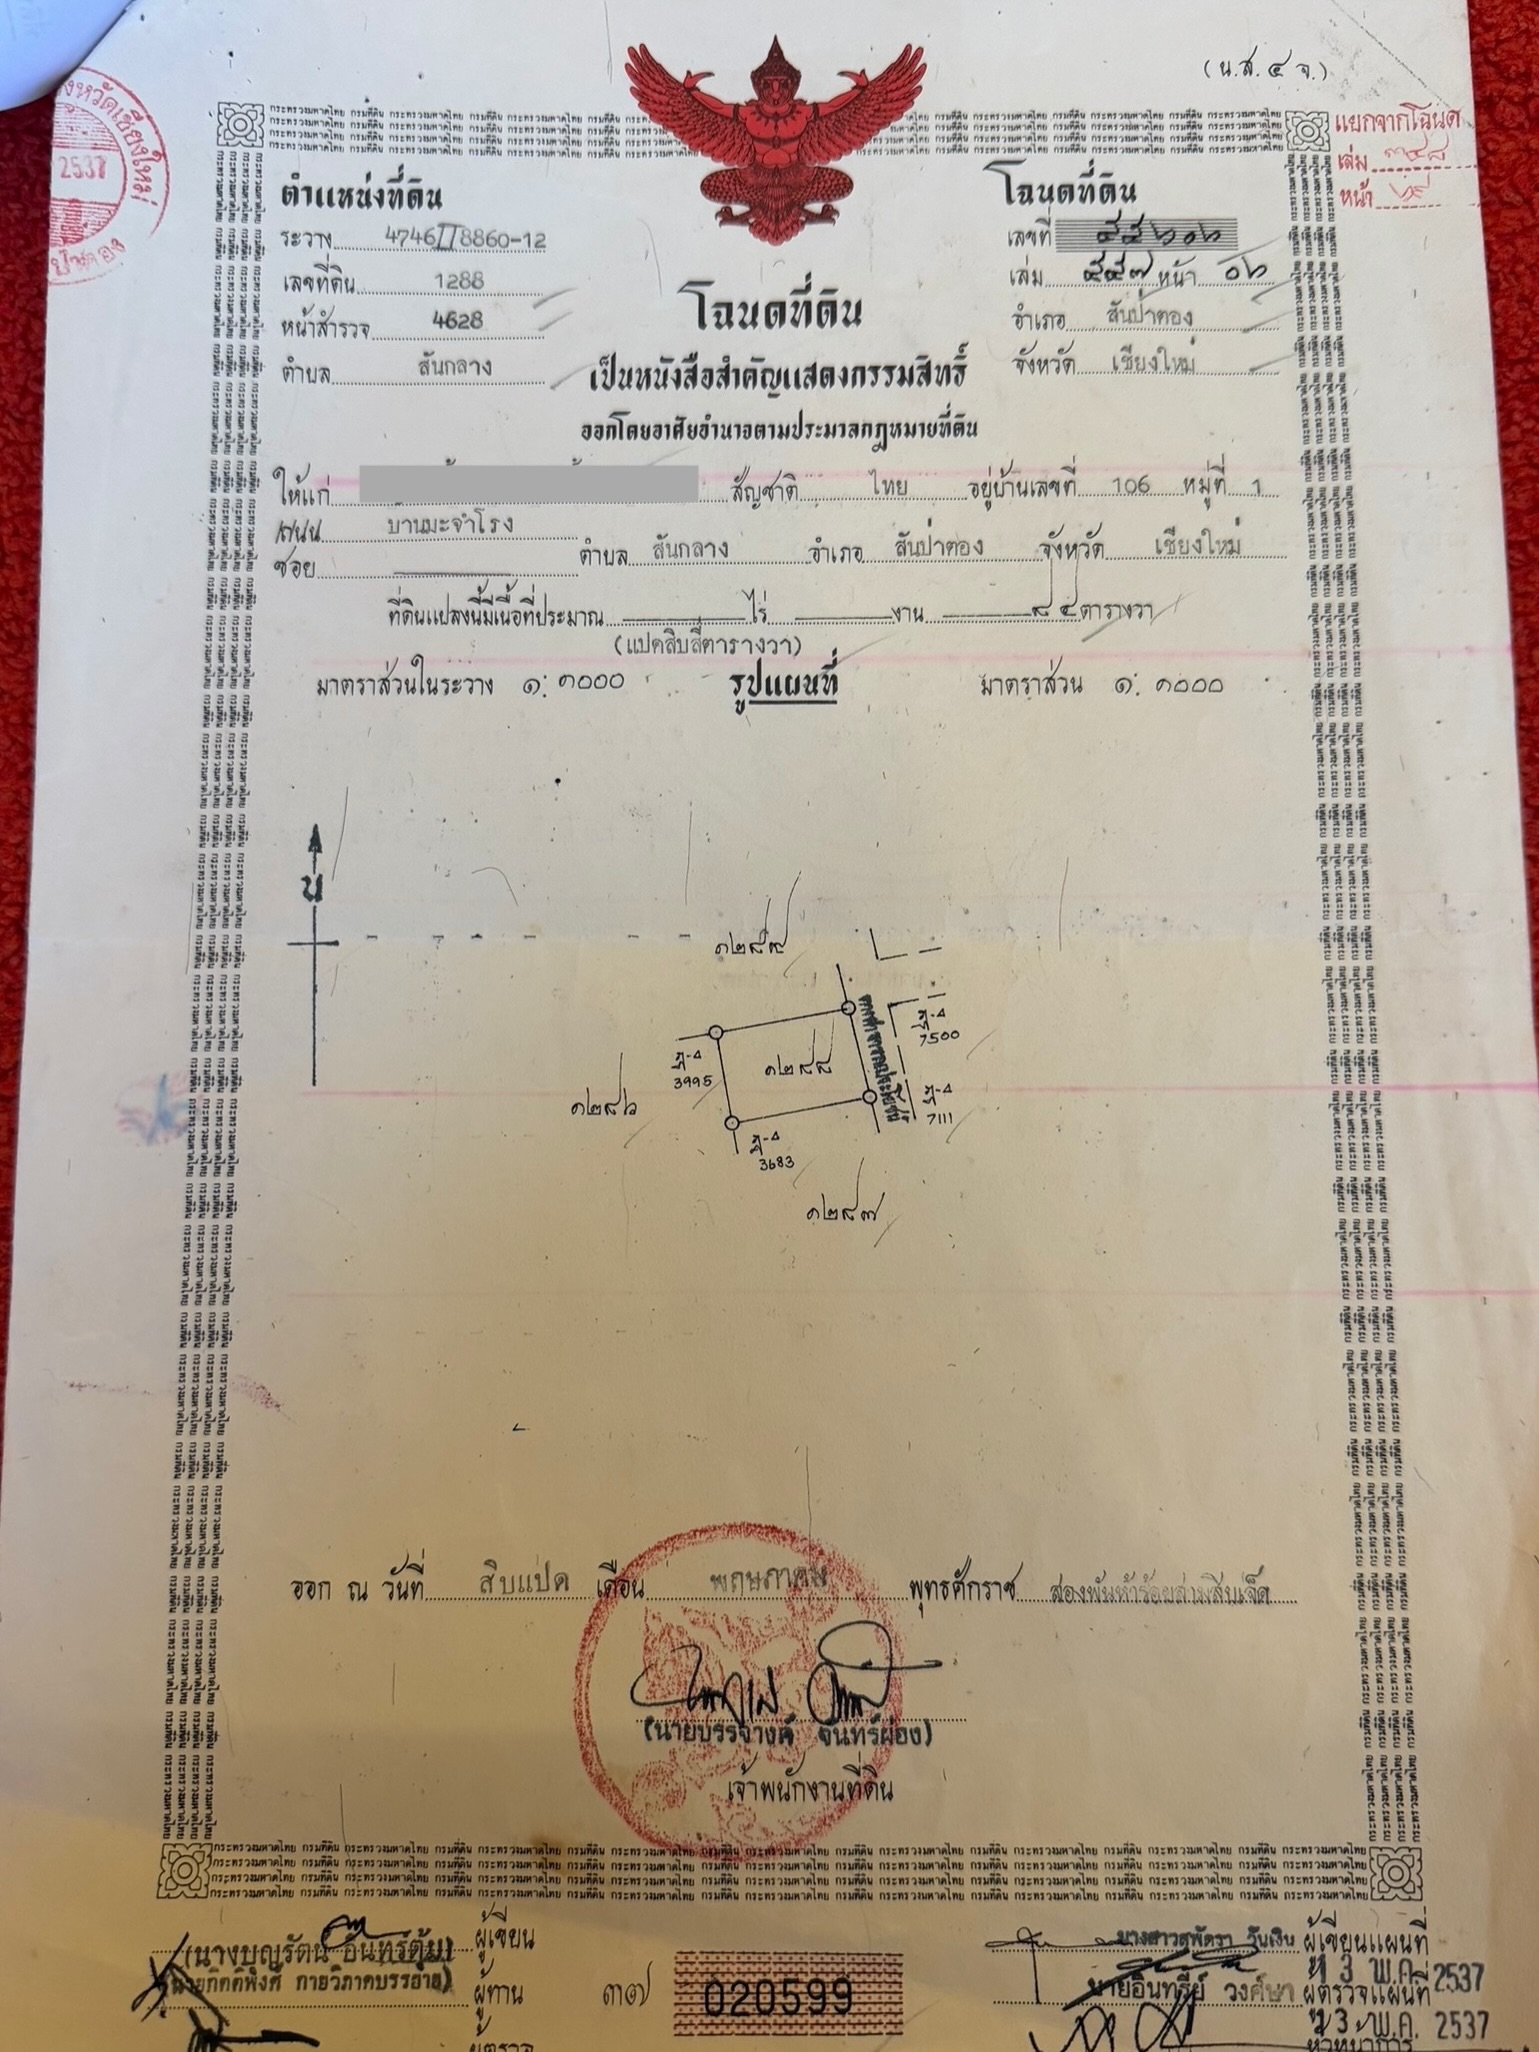 (น.ส.๔ จ.)
จังหวัดเชียงใหม่
2537
แยกจากโฉนด
เล่ม
หน้า
ตำแหน่งที่ดิน
ระวาง 4746 II 8860-12
เลขที่ดิน 1288
หน้าสำรวจ 4628
ตำบล สันกลาง
โฉนดที่ดิน
เลขที่ ๕๕๖๐๖
เล่ม ๕๕๗ หน้า ๐๖
อำเภอ สันป่าตอง
จังหวัด เชียงใหม่
โฉนดที่ดิน
เป็นหนังสือสำคัญแสดงกรรมสิทธิ์
ออกโดยอาศัยอำนาจตามประมวลกฎหมายที่ดิน
ให้แก่ สัญชาติ ไทย อยู่บ้านเลขที่ 106 หมู่ที่ 1
ถนน บานมะจำโรง
ซอย ตำบล สันกลาง อำเภอ สันป่าตอง จังหวัด เชียงใหม่
ที่ดินแปลงนี้มีเนื้อที่ประมาณ ไร่ งาน ๘๔ ตารางวา
(แปดสิบสี่ตารางวา)
มาตราส่วนในระวาง ๑:๑๐๐๐ รูปแผนที่ มาตราส่วน ๑:๑๐๐๐
น
๑๒๘๙
7500
๑๒๘๘
3995
๑๒๘๖
7111
3683
๑๒๘๗
ทางสาธารณประโยชน์
ออก ณ วันที่ สิบแปด เดือน พฤษภาคม พุทธศักราช สองพันห้าร้อยสามสิบเจ็ด
(นายบรรจางค์ จันทร์ผ่อง)
เจ้าพนักงานที่ดิน
(นางบุญรัตน์ อินทร์ตุ้ม) ผู้เขียน
(นายกิตติพงศ์ กายวิภาคบรรยาย) ผู้ทาน
ผู้ตรวจ
๓๗
020599
นางสาวสุพัตรา วันเงิน ผู้เขียนแผนที่
13 พ.ค. 2537
นายอินทรีย์ วงศ์ษา ผู้ตรวจแผนที่
13 พ.ค. 2537
หัวหน้าการ
กระทรวงมหาดไทย กรมที่ดิน